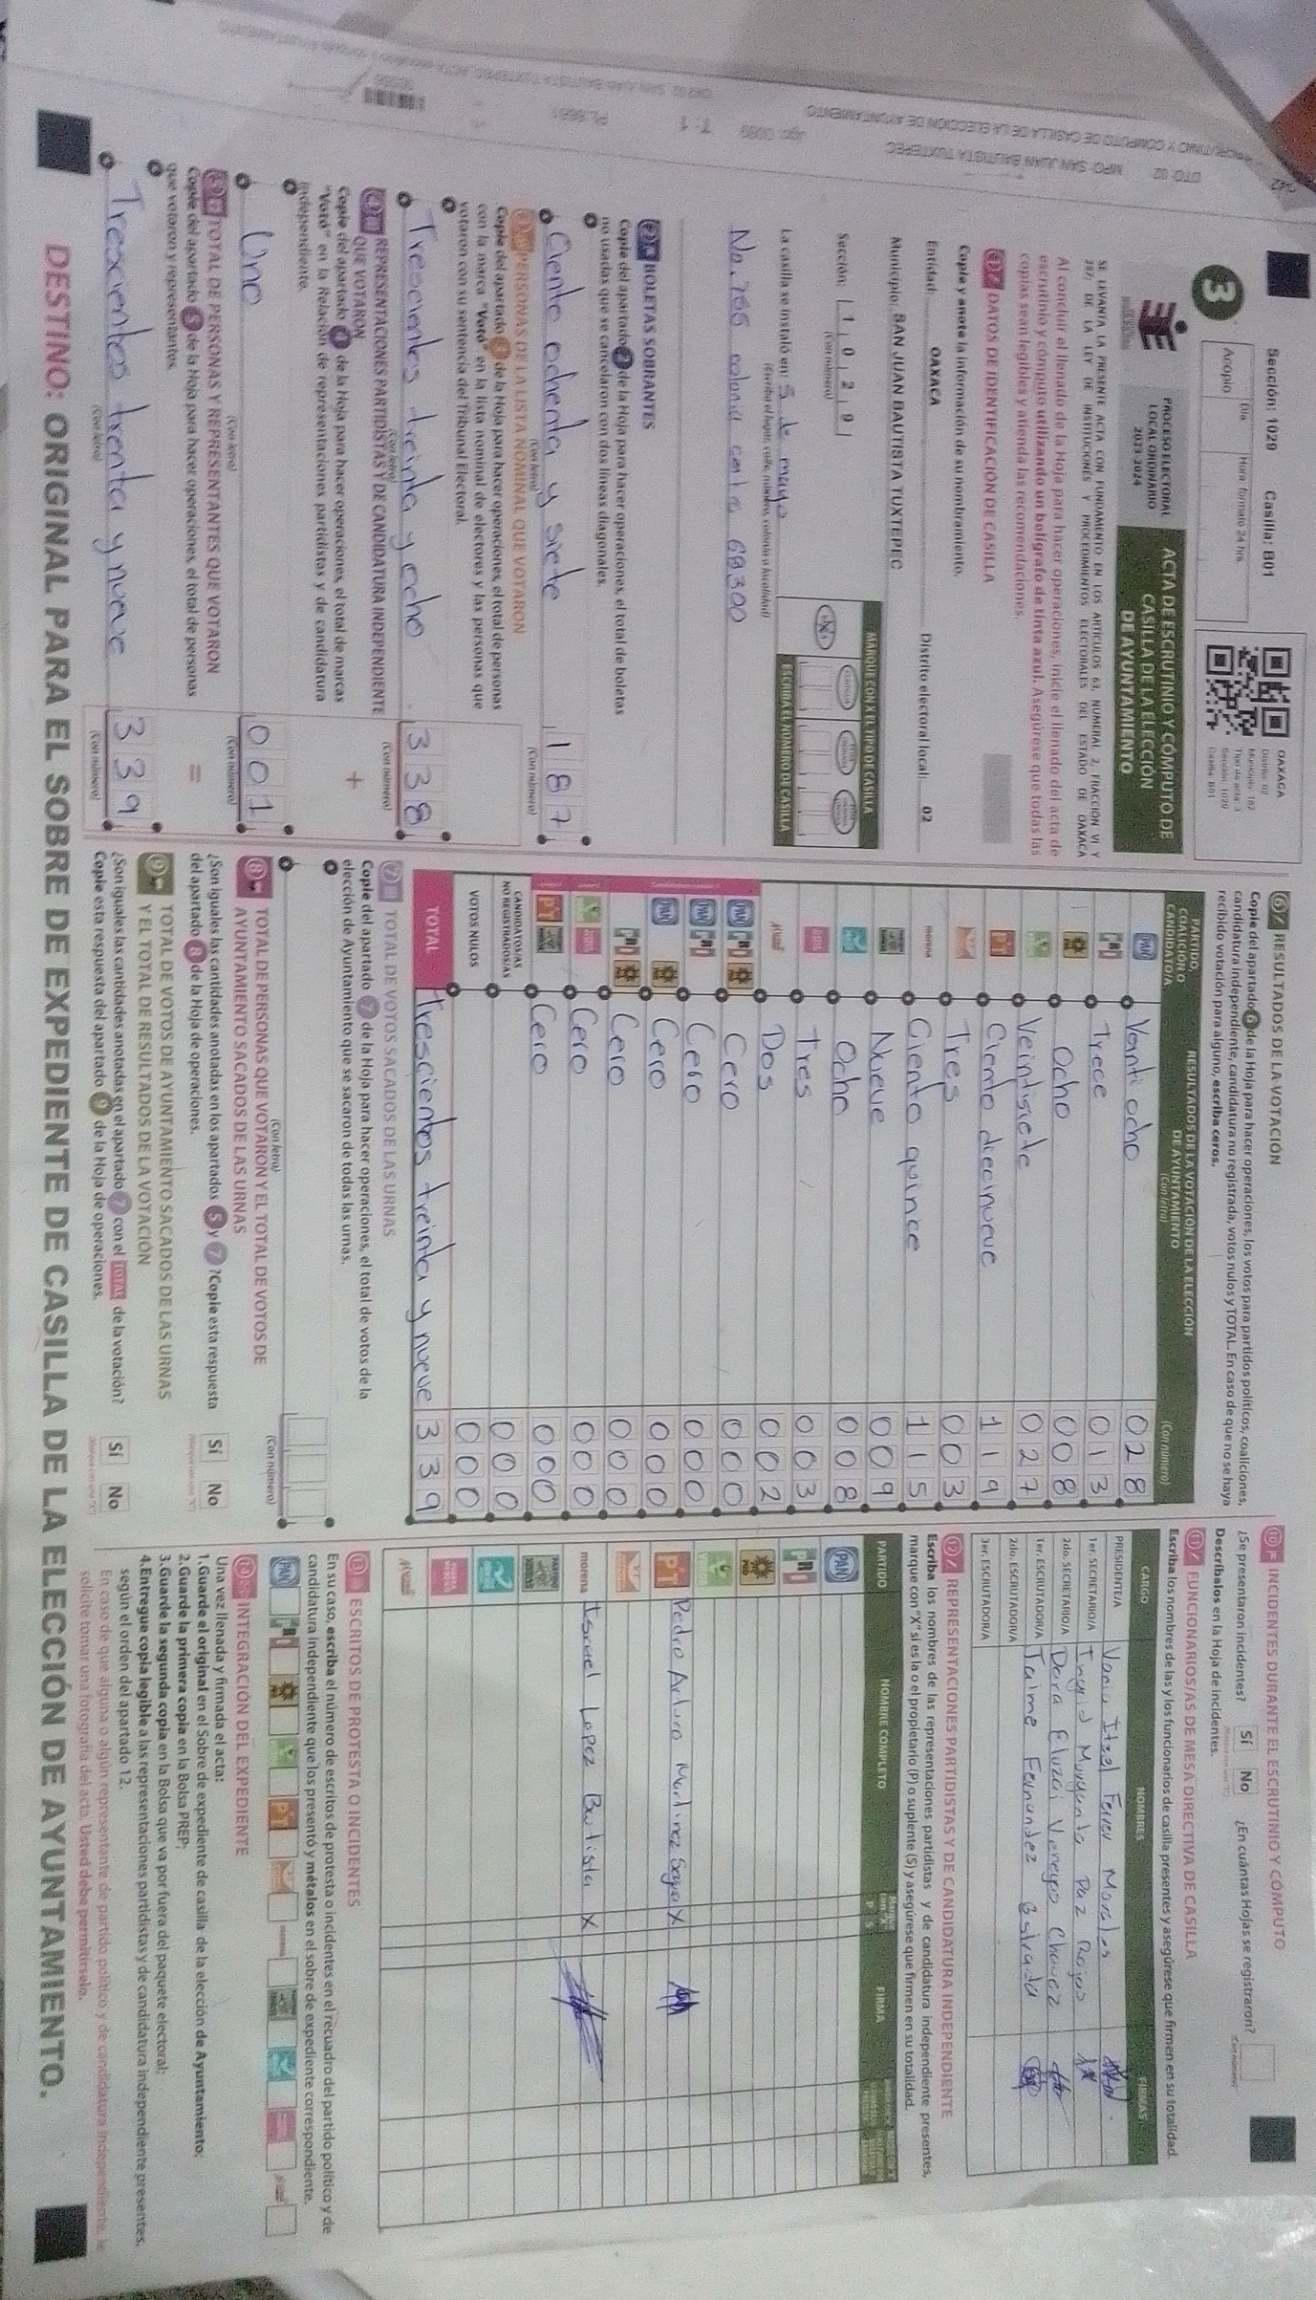 Sección: 1029 Casilla: B01
Día Hora: formato 24 hrs.
Acopio
3
OAXACA
Distrito: 02
Municipio: 182
Tipo de acta: 3
Sección: 1029
Casilla: B01
PROCESO ELECTORAL
LOCAL ORDINARIO
2023-2024
ACTA DE ESCRUTINIO Y CÓMPUTO DE
CASILLA DE LA ELECCIÓN
DE AYUNTAMIENTO
SE LEVANTA LA PRESENTE ACTA CON FUNDAMENTO EN LOS ARTÍCULOS 63, NUMERAL 2, FRACCIÓN VI Y
DE LA LEY DE INSTITUCIONES Y PROCEDIMIENTOS ELECTORALES DEL ESTADO DE OAXACA
Al concluir el llenado de la Hoja para hacer operaciones, inicie el llenado del acta de
escrutinio y cómputo utilizando un bolígrafo de tinta azul. Asegúrese que todas las
copias sean legibles y atienda las recomendaciones.
1 DATOS DE IDENTIFICACIÓN DE CASILLA
Copie y anote la información de su nombramiento.
Entidad: OAXACA Distrito electoral local: 02
Municipio: SAN JUAN BAUTISTA TUXTEPEC
Sección: 1 0 2 9
(Con número)
MARQUE CON X EL TIPO DE CASILLA
ESCRIBA EL NÚMERO DE CASILLA
La casilla se instaló en: 5 de mayo
(Escriba el lugar, calle, número, colonia o localidad)
No. 766 colonia centro 68300
2 BOLETAS SOBRANTES
Copie del apartado 2 de la Hoja para hacer operaciones, el total de boletas
no usadas que se cancelaron con dos líneas diagonales.
Ciento ochenta y siete 187
(Con letra) (Con número)
3 PERSONAS DE LA LISTA NOMINAL QUE VOTARON
Copie del apartado 3 de la Hoja para hacer operaciones, el total de personas
con la marca "Votó" en la lista nominal de electores y las personas que
votaron con su sentencia del Tribunal Electoral.
Trescientos treinta y ocho 338
(Con letra) (Con número)
4 REPRESENTACIONES PARTIDISTAS Y DE CANDIDATURA INDEPENDIENTE
QUE VOTARON
Copie del apartado 4 de la Hoja para hacer operaciones, el total de marcas
"Votó" en la Relación de representaciones partidistas y de candidatura
independiente.
+
Uno 001
(Con letra) (Con número)
5 TOTAL DE PERSONAS Y REPRESENTANTES QUE VOTARON
Copie del apartado 5 de la Hoja para hacer operaciones, el total de personas
que votaron y representantes.
=
Trescientos treinta y nueve 339
(Con letra) (Con número)
6 RESULTADOS DE LA VOTACIÓN
Copie del apartado 6 de la Hoja para hacer operaciones, los votos para partidos políticos, coaliciones,
candidatura independiente, candidatura no registrada, votos nulos y TOTAL. En caso de que no se haya
recibido votación para alguno, escriba ceros.
PARTIDO,
COALICIÓN O
CANDIDATO/A
RESULTADOS DE LA VOTACIÓN DE LA ELECCIÓN
DE AYUNTAMIENTO
(Con letra) (Con número)
PAN Venti ocho 028
PRI Trece 013
Ocho 008
Veintisiete 027
PT Ciento diecinueve 119
Tres 003
morena Ciento quince 115
Nueve 009
Ocho 008
Tres 003
Dos 002
PAN PRI Cero 000
PAN PRI Cero 000
PAN Cero 000
PRI Cero 000
Cero 000
PT Cero 000
CANDIDATOS/AS
NO REGISTRADOS/AS 000
VOTOS NULOS 000
TOTAL Trescientos treinta y nueve 339
7 TOTAL DE VOTOS SACADOS DE LAS URNAS
Copie del apartado 7 de la Hoja para hacer operaciones, el total de votos de la
elección de Ayuntamiento que se sacaron de todas las urnas.
(Con letra) (Con número)
8 TOTAL DE PERSONAS QUE VOTARON Y EL TOTAL DE VOTOS DE
AYUNTAMIENTO SACADOS DE LAS URNAS
¿Son iguales las cantidades anotadas en los apartados 5 y 7? Copie esta respuesta
del apartado 8 de la Hoja de operaciones.
Sí No
9 TOTAL DE VOTOS DE AYUNTAMIENTO SACADOS DE LAS URNAS
Y EL TOTAL DE RESULTADOS DE LA VOTACIÓN
¿Son iguales las cantidades anotadas en el apartado 7 con el TOTAL de la votación?
Copie esta respuesta del apartado 9 de la Hoja de operaciones.
Sí No
10 INCIDENTES DURANTE EL ESCRUTINIO Y CÓMPUTO
¿Se presentaron incidentes? Sí No ¿En cuántas Hojas se registraron?
Descríbalos en la Hoja de incidentes.
11 FUNCIONARIOS/AS DE MESA DIRECTIVA DE CASILLA
Escriba los nombres de las y los funcionarios de casilla presentes y asegúrese que firmen en su totalidad.
CARGO NOMBRES FIRMAS
PRESIDENTE/A Vania Itzel Ferrer Morales
1er. SECRETARIO/A Ingrid Paz Rojas
2do. SECRETARIO/A Dora Chavez
1er. ESCRUTADOR/A Jaime Fernandez Estrada
2do. ESCRUTADOR/A
3er. ESCRUTADOR/A
12 REPRESENTACIONES PARTIDISTAS Y DE CANDIDATURA INDEPENDIENTE
Escriba los nombres de las representaciones partidistas y de candidatura independiente presentes,
marque con "X" si es la o el propietario (P) o suplente (S) y asegúrese que firmen en su totalidad.
PARTIDO NOMBRE COMPLETO P S FIRMA
PAN
PRI
PRD
PT Pedro Arturo Martinez X
morena Israel Lopez Bautista X
13 ESCRITOS DE PROTESTA O INCIDENTES
En su caso, escriba el número de escritos de protesta o incidentes en el recuadro del partido político y de
candidatura independiente que los presentó y métalos en el sobre de expediente correspondiente.
14 INTEGRACIÓN DEL EXPEDIENTE
Una vez llenada y firmada el acta:
1. Guarde el original en el Sobre de expediente de casilla de la elección de Ayuntamiento;
2. Guarde la primera copia en la Bolsa PREP;
3. Guarde la segunda copia en la Bolsa que va por fuera del paquete electoral;
4. Entregue copia legible a las representaciones partidistas y de candidatura independiente presentes,
según el orden del apartado 12.
En caso de que alguna o algún representante de partido político y de candidatura independiente, le
solicite tomar una fotografía del acta. Usted debe permitírselo.
DESTINO: ORIGINAL PARA EL SOBRE DE EXPEDIENTE DE CASILLA DE LA ELECCIÓN DE AYUNTAMIENTO.